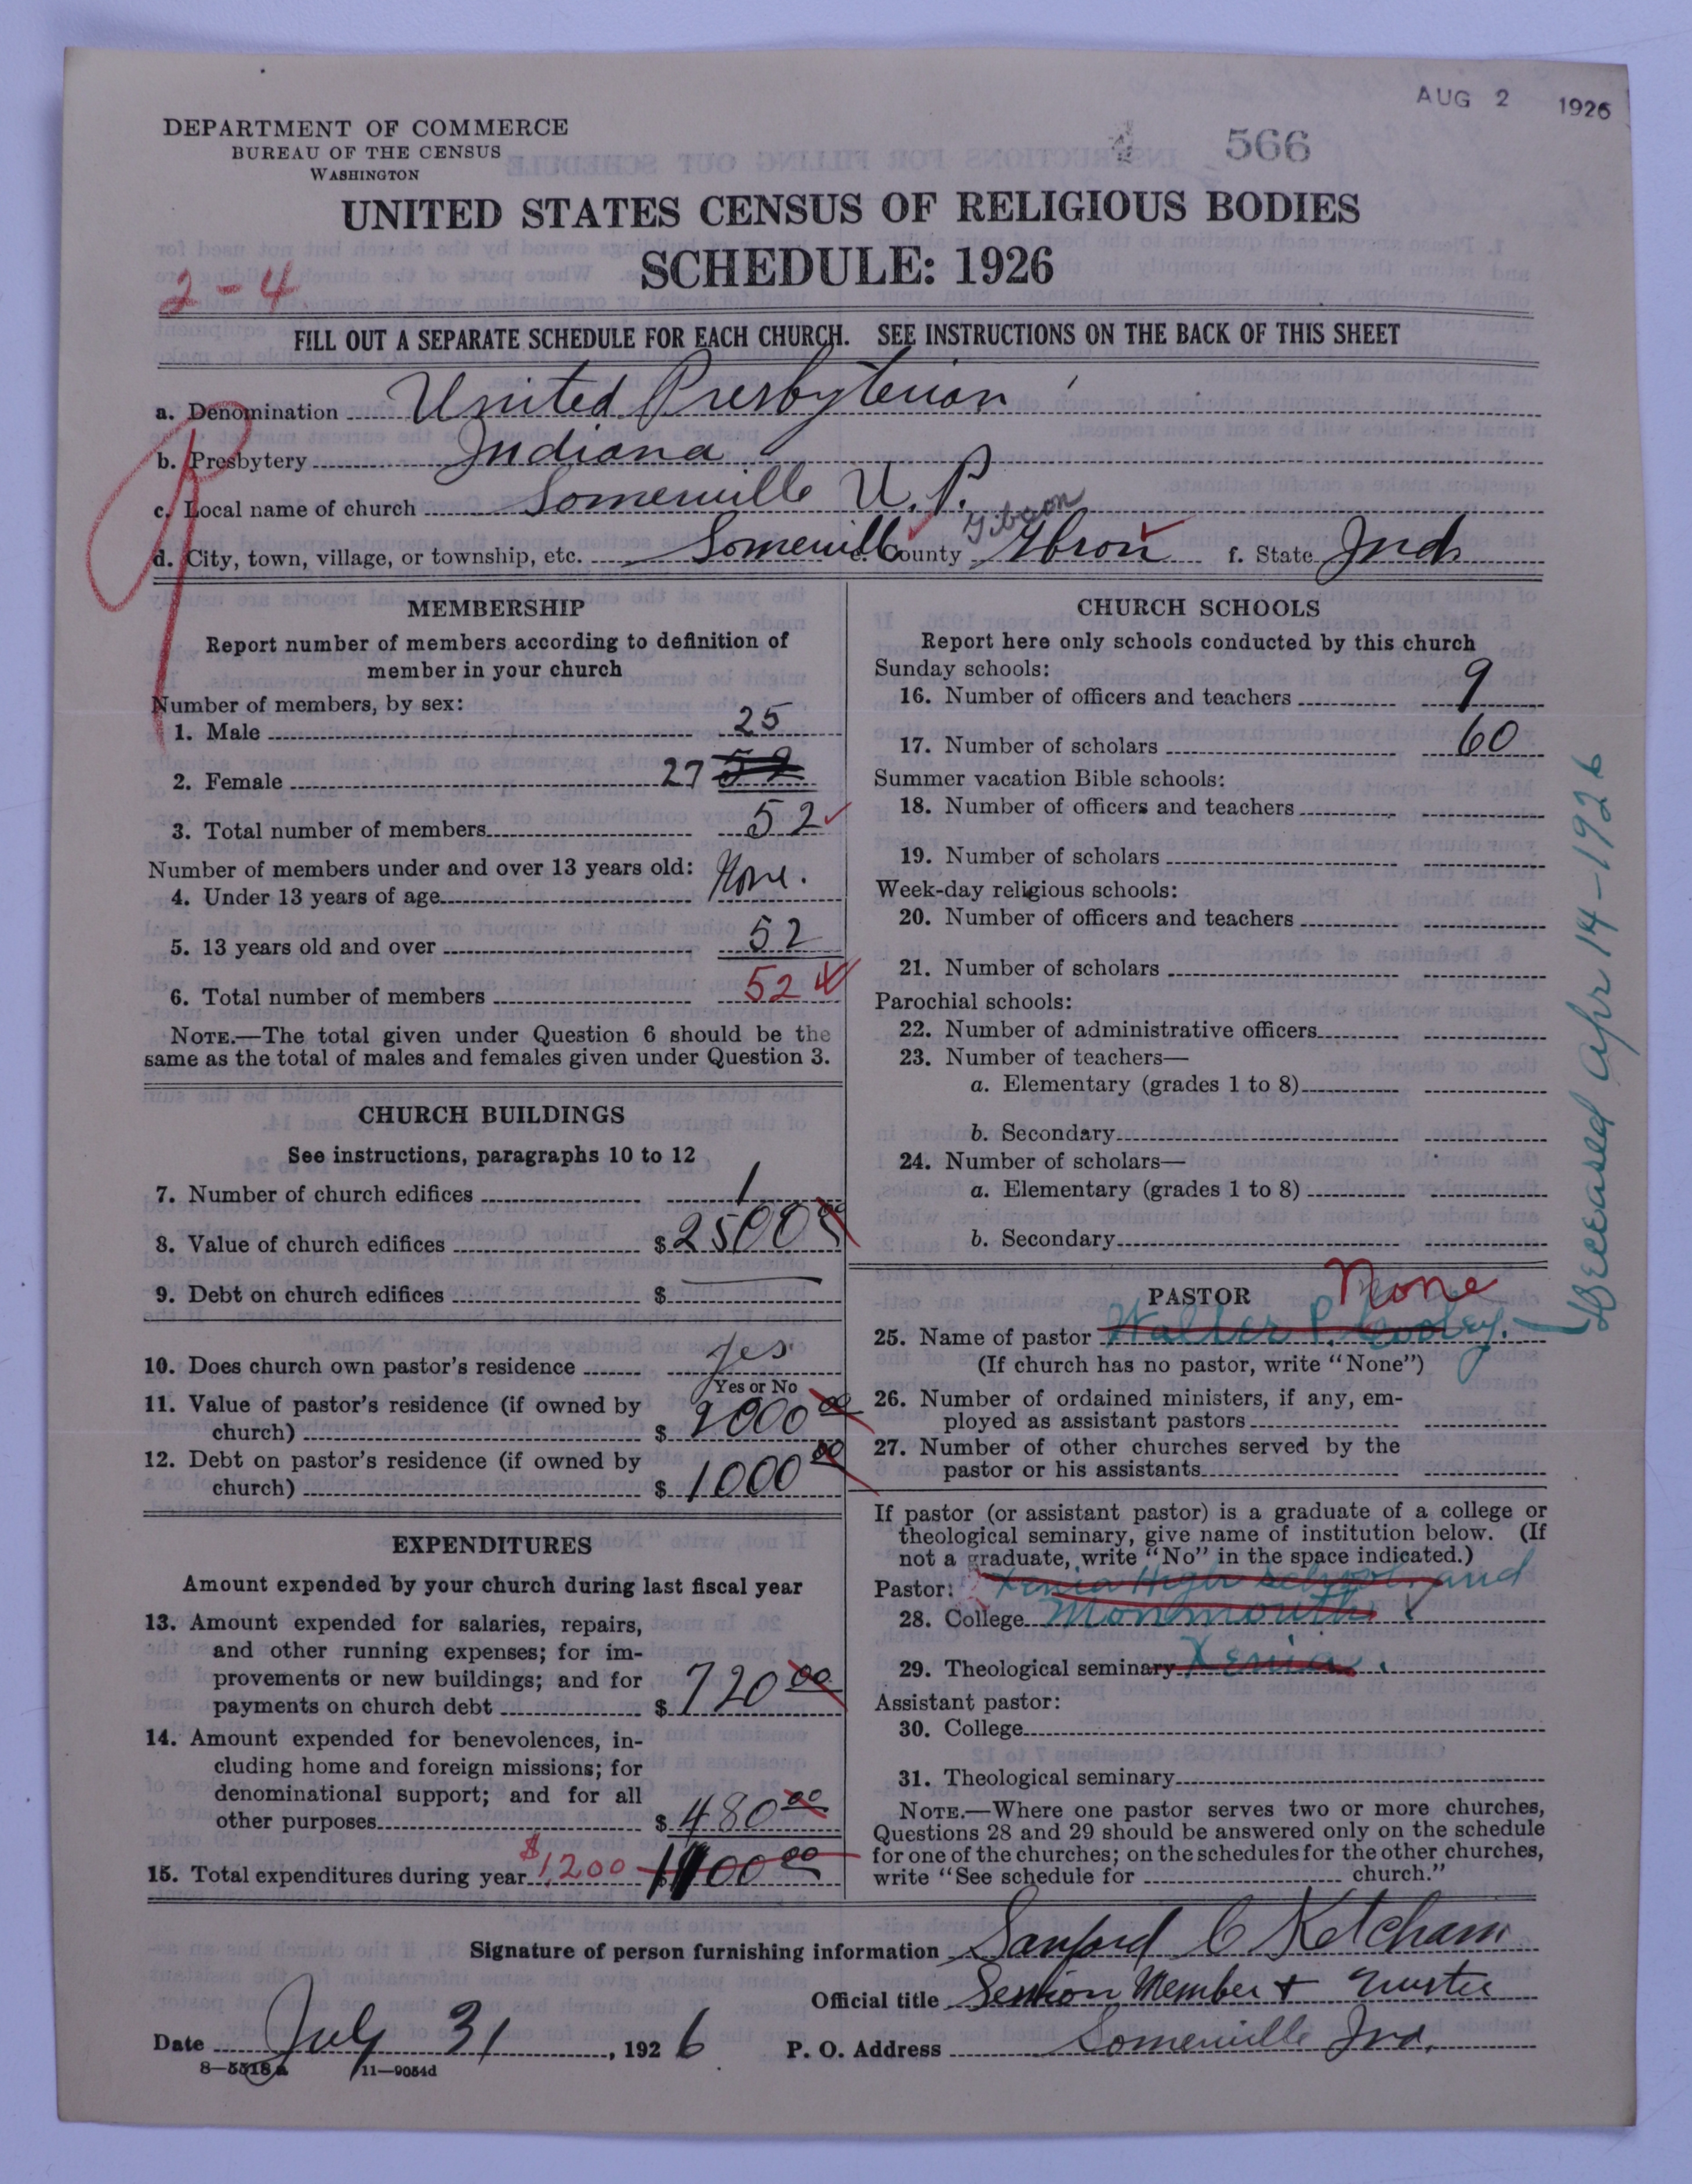 AUG 2 1926
DEPARTMENT OF COMMERCE
BUREAU OF THE CENSUS
WASHINGTON
566
UNITED STATES CENSUS OF RELIGIOUS BODIES
SCHEDULE: 1926
2-4
FILL OUT A SEPARATE SCHEDULE FOR EACH CHURCH. SEE INSTRUCTIONS ON THE BACK OF THIS SHEET
a. Denomination United Presbyterian
b. Presbytery Indiana
c. Local name of church Somerville U.P.
Gibson
d. City, town, village, or township, etc. Somerville e. County Gbron f. State Ind
MEMBERSHIP
Report number of members according to definition of
member in your church
Number of members, by sex:
1. Male 25
2. Female 27 52
3. Total number of members 52
Number of members under and over 13 years old:
4. Under 13 years of age None.
5. 13 years old and over 52
6. Total number of members 52
NOTE.—The total given under Question 6 should be the
same as the total of males and females given under Question 3.
CHURCH BUILDINGS
See instructions, paragraphs 10 to 12
7. Number of church edifices 1
8. Value of church edifices $ 2500 00
9. Debt on church edifices $ —
10. Does church own pastor's residence yes
Yes or No
11. Value of pastor's residence (if owned by
church) $ 2000 00
12. Debt on pastor's residence (if owned by
church) $ 1000 00
EXPENDITURES
Amount expended by your church during last fiscal year
13. Amount expended for salaries, repairs,
and other running expenses; for im-
provements or new buildings; and for
payments on church debt $ 720 00
14. Amount expended for benevolences, in-
cluding home and foreign missions; for
denominational support; and for all
other purposes $ 480 00
15. Total expenditures during year $1,200 $ 1100 00
CHURCH SCHOOLS
Report here only schools conducted by this church
Sunday schools:
16. Number of officers and teachers 9
17. Number of scholars 60
Summer vacation Bible schools:
18. Number of officers and teachers
19. Number of scholars
Week-day religious schools:
20. Number of officers and teachers
21. Number of scholars
Parochial schools:
22. Number of administrative officers
23. Number of teachers—
a. Elementary (grades 1 to 8)
b. Secondary
24. Number of scholars—
a. Elementary (grades 1 to 8)
b. Secondary
PASTOR None
25. Name of pastor Walter P. Cooley.
Deceased Apr 14-1926
(If church has no pastor, write "None")
26. Number of ordained ministers, if any, em-
ployed as assistant pastors
27. Number of other churches served by the
pastor or his assistants
If pastor (or assistant pastor) is a graduate of a college or
theological seminary, give name of institution below. (If
not a graduate, write "No" in the space indicated.)
Pastor: Xenia High School and
28. College Monmouth
29. Theological seminary Xenia.
Assistant pastor:
30. College
31. Theological seminary
NOTE.—Where one pastor serves two or more churches,
Questions 28 and 29 should be answered only on the schedule
for one of the churches; on the schedules for the other churches,
write "See schedule for church."
Signature of person furnishing information Sanford C Ketcham
Official title Session Member & Trustee
Date July 31, 1926 P. O. Address Somerville Ind.
8-5518a 11-9054d